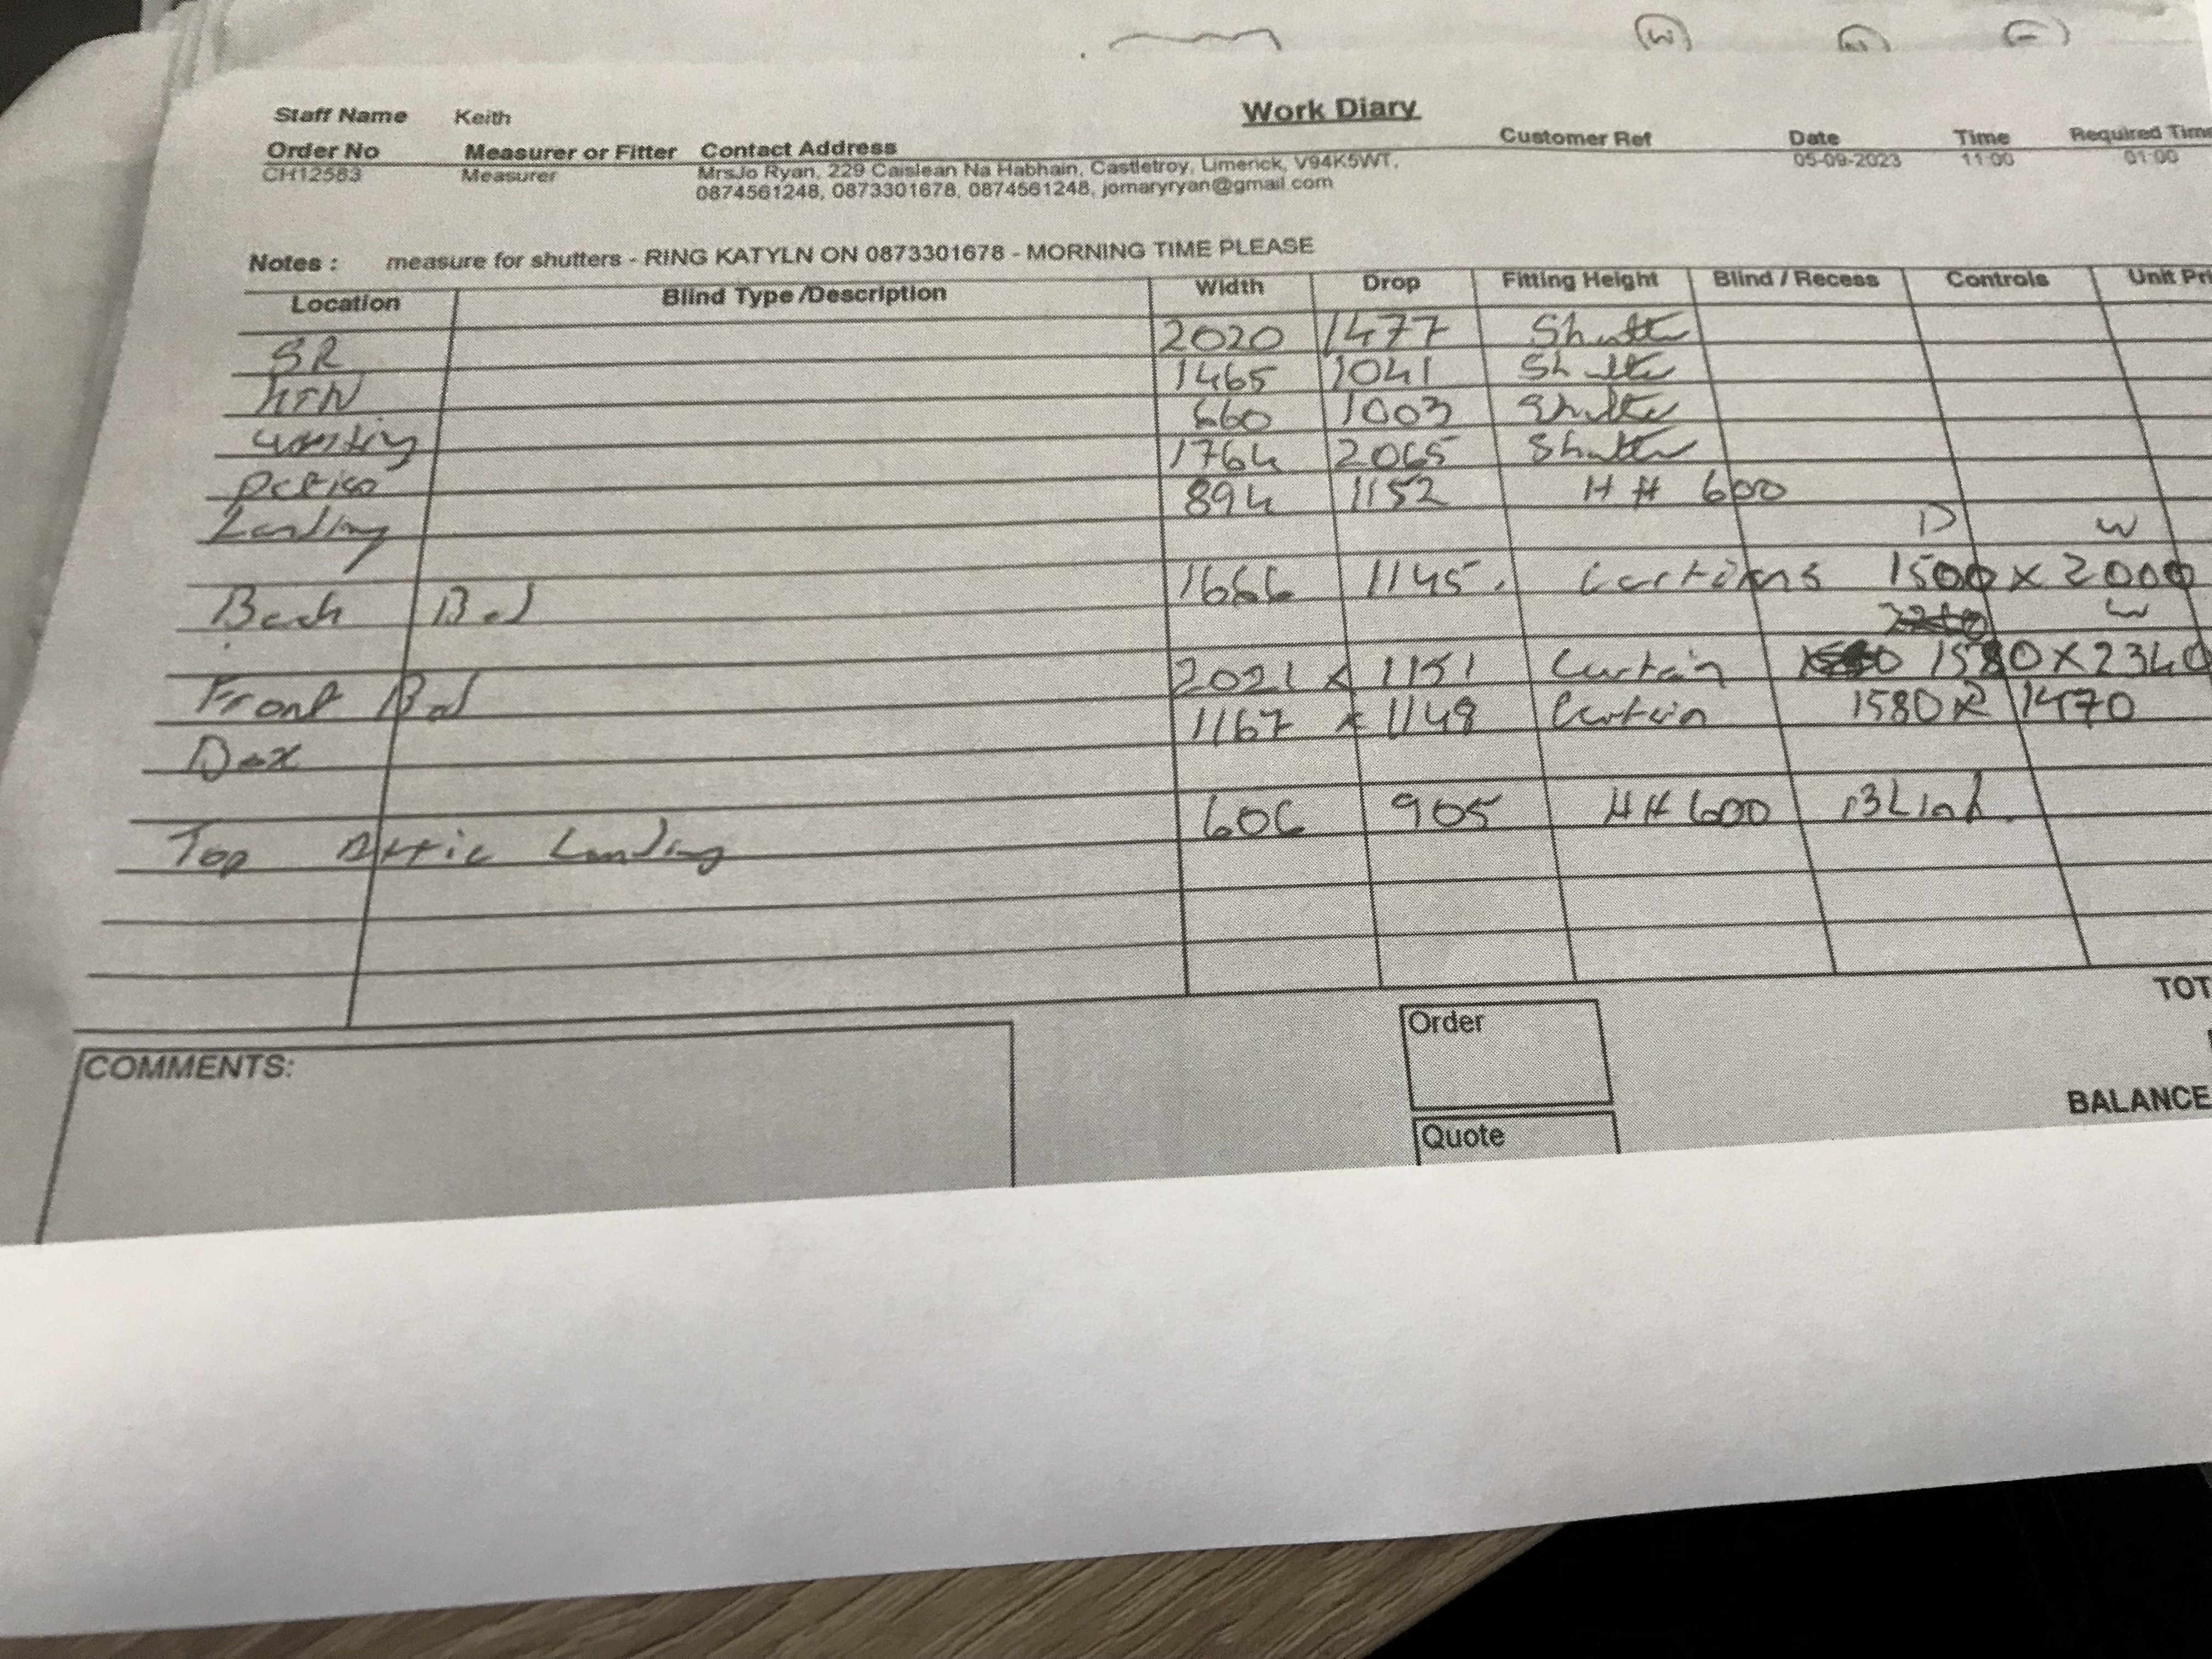 Work Diary
Staff Name Keith
Order No Measurer or Fitter Contact Address Customer Ref Date Time Required Time
CH12583 Measurer MrsJo Ryan, 229 Caislean Na Habhain, Castletroy, Limerick, V94K5WT, 05-09-2023 11:00 01:00
0874561248, 0873301678, 0874561248, jomaryryan@gmail.com
Notes : measure for shutters - RING KATYLN ON 0873301678 - MORNING TIME PLEASE
Location Blind Type /Description Width Drop Fitting Height Blind / Recess Controls Unit Pri
SR 2020 1477 Shutter
KTN 1465 1041 Shutter
660 1003 Shutter
1764 2065 Shutter
Landing 894 1152 HH 600
D W
Back Bed 1666 1145. 1500 x 2000
W
Front Bed 2021 x 1151 Curtain 1580 x 2340
1167 x 1148 Curtain 1580 x 1470
Top Attic Landing 606 905 HH 600 Blind.
TOT
COMMENTS:
Order
BALANCE
Quote